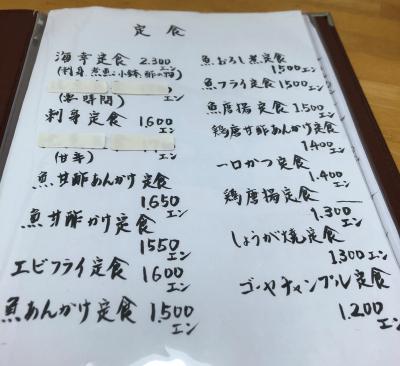 定食
海幸定食 2.300エン
(刺身、煮魚、小鉢、酢の物)
(要時間)
刺身定食 1600エン
(甘辛)
魚甘酢あんかけ定食
1,650エン
魚甘酢かけ定食
1550エン
エビフライ定食 1600エン
魚あんかけ定食 1.500エン
魚おろし煮定食
1500エン
魚フライ定食 1500エン
魚唐揚定食 1500エン
鶏唐甘酢あんかけ定食
1400エン
一口かつ定食
1.400エン
鶏唐揚定食
1.300エン
しょうが焼定食
1300エン
ゴーヤチャンプル定食
1.200エン